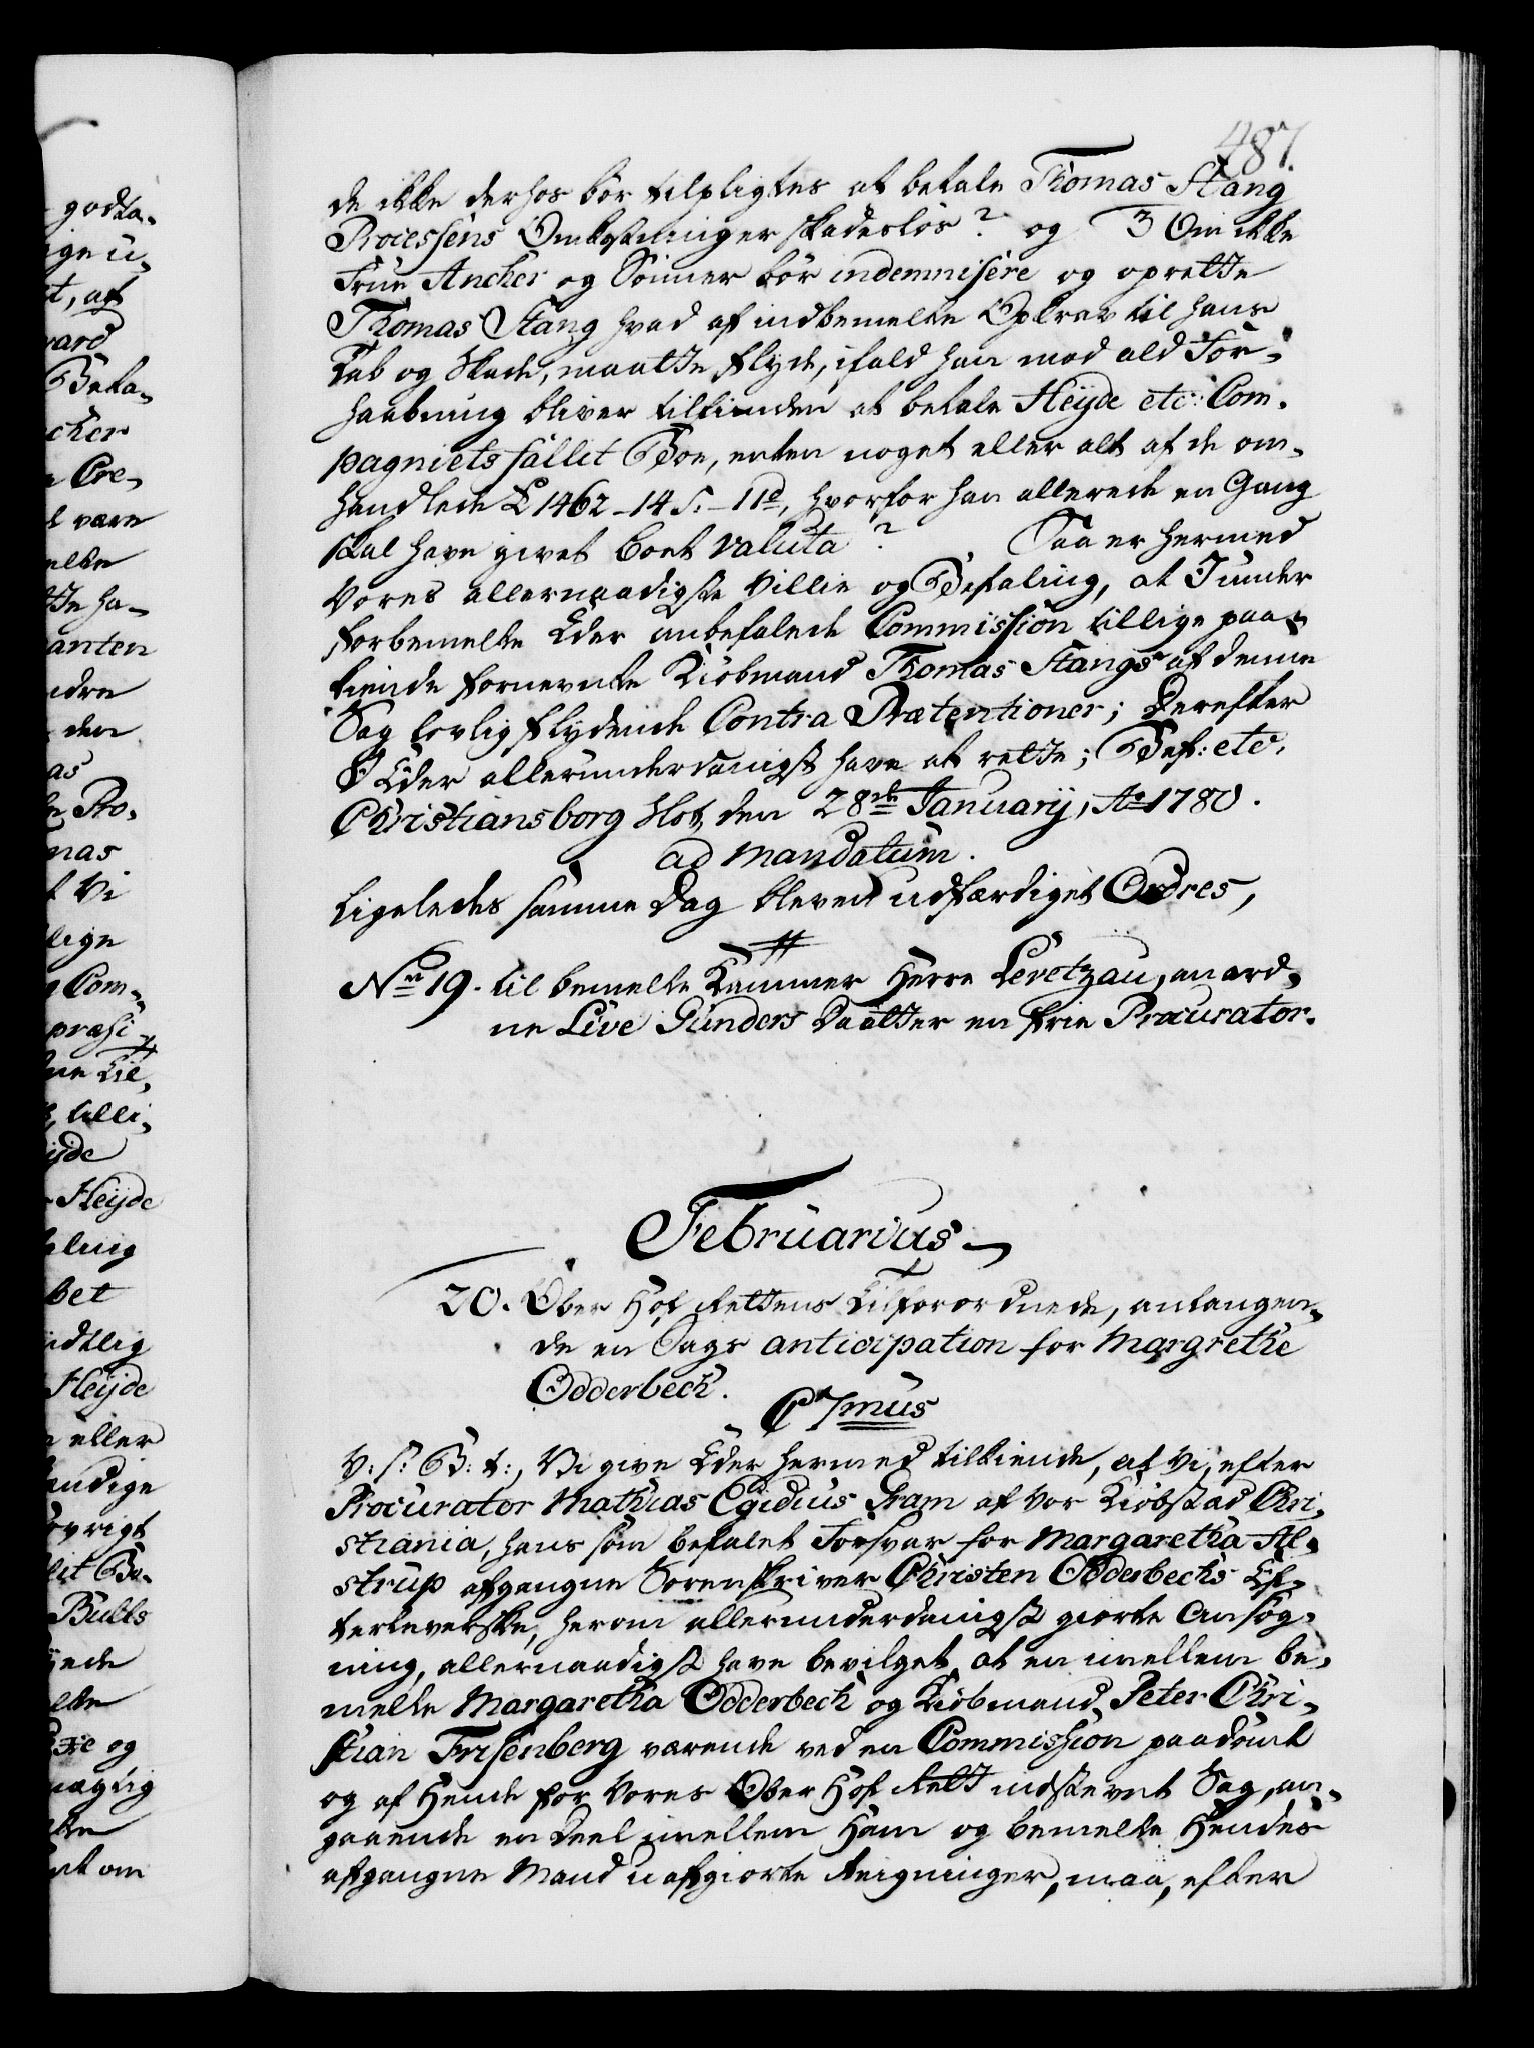 487.
de ikke derhos bør tilpligtes at betale Thomas Stang
Processens Omkostninger skadesløs? og 3 Om ikke
Frue Ancher og Sönner bör indemnisere og oprette
Thomas Stang hvad af indbemelte Opkrav til hans
Tab og Skade, maatte flyde, ifald han mod ald For¬
haabning bliver tilfunden at betale Heÿde etc: Com¬
pagniets fallit Boe, enten noget eller alt af de om¬
handlede £ 1462 - 14 s. - 11d, hvorfor han allerede en Gang
skal have givet boet valuta? Saa er hermed
Vores allernaadigste Villie og Befaling, at I under
forbemelte Eder anbefalede Commission tillige paa¬
kiende fornevnte Kiöbmand Thomas Stangs af denne
Sag lovlig flydende Contra Prætentioner; Derefter
I Eder allerunderdanigst have at rette; Bef: etc.
Christiansborg Slot den 28de Januarij, Ao 1780.
ad mandatum.
Ligeledes samme Dag bleven udfærdiget Ordres,
No 19. til bemelte Kammer Herre Levetzau, anord¬
ne Live Gunders Daatter en frie Procurator.
Februarius
20. Ober Hof Rettens Tilforordnede, anlangen¬
de en Sags anticipation for Margrethe
Odderbech.
C 7mus
V: s: G: t:, Vi give Eder hermed tilkiende, at Vi, efter
Procurator Mathias Egidius Gram af Vor Kiöbstad Chri¬
stiania, hans som befalet Forsvar for Margaretha Al¬
strup afgangne Sorenskriver Christen Odderbechs Ef¬
terleverske, herom allerunderdanigst giorte Ansøg¬
ning, allernaadigst have bevilget, at en imellem be¬
melte Margaretha Odderbech og Kiöbmand Peter Chri¬
stian Frisenberg værende ved en Commission paadömt
og af Hende for Vores Ober Hof Rett indstevnt Sag, an¬
gaaende en Deel imellem Ham og bemelte Hendes
afgangne Mand uafgiorte Regninger, maa, efter